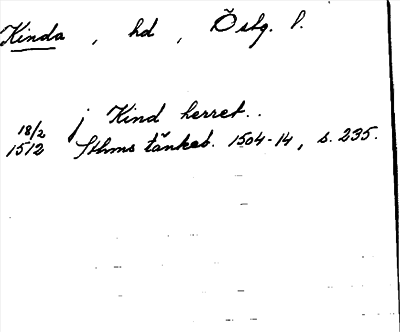 Kinda, hd, Östg. l.
j Kind herret..
18/2 1512 Sthms tänkeb. 1504-14, s. 235.